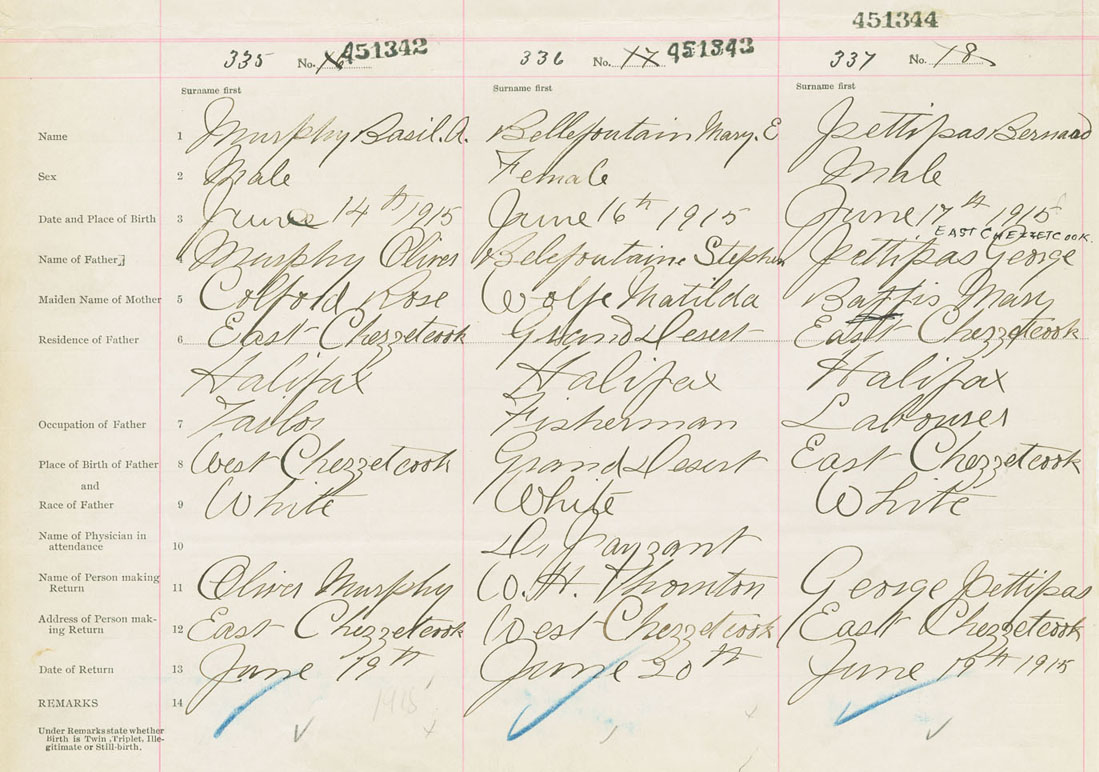 451344
335 No. 16 451342 336 No. 17 451343 337 No. 18
Surname first Surname first Surname first
Name 1 Murphy Basil. A. Bellefountain Mary. E Pettipas Bernard
Sex 2 Male Female Male
Date and Place of Birth 3 June 14th 1915 June 16th 1915 June 17th 1915
EAST CHEZZETCOOK.
Name of Father 4 Murphy Oliver Belefountaine Stephen Pettipas George
Maiden Name of Mother 5 Colford Rose Wolfe Matilda Mary
Residence of Father 6 East Chezzetcook Grand Desert East Chezzetcook
Halifax Halifax Halifax
Occupation of Father 7 Tailor Fisherman Labourer
Place of Birth of Father 8 West Chezzetcook Grand Desert East Chezzetcook
and
Race of Father 9 White White White
Name of Physician in
attendance 10 Dr Payzant
Name of Person making
Return 11 Oliver Murphy W. H. Thornton George Pettipas
Address of Person mak-
ing Return 12 East Chezzetcook West Chezzetcook East Chezzetcook
Date of Return 13 June 19th June 20th June 19th 1915
REMARKS 14 1915
Under Remarks state whether
Birth is Twin, Triplet, Ille-
gitimate or Still-birth.